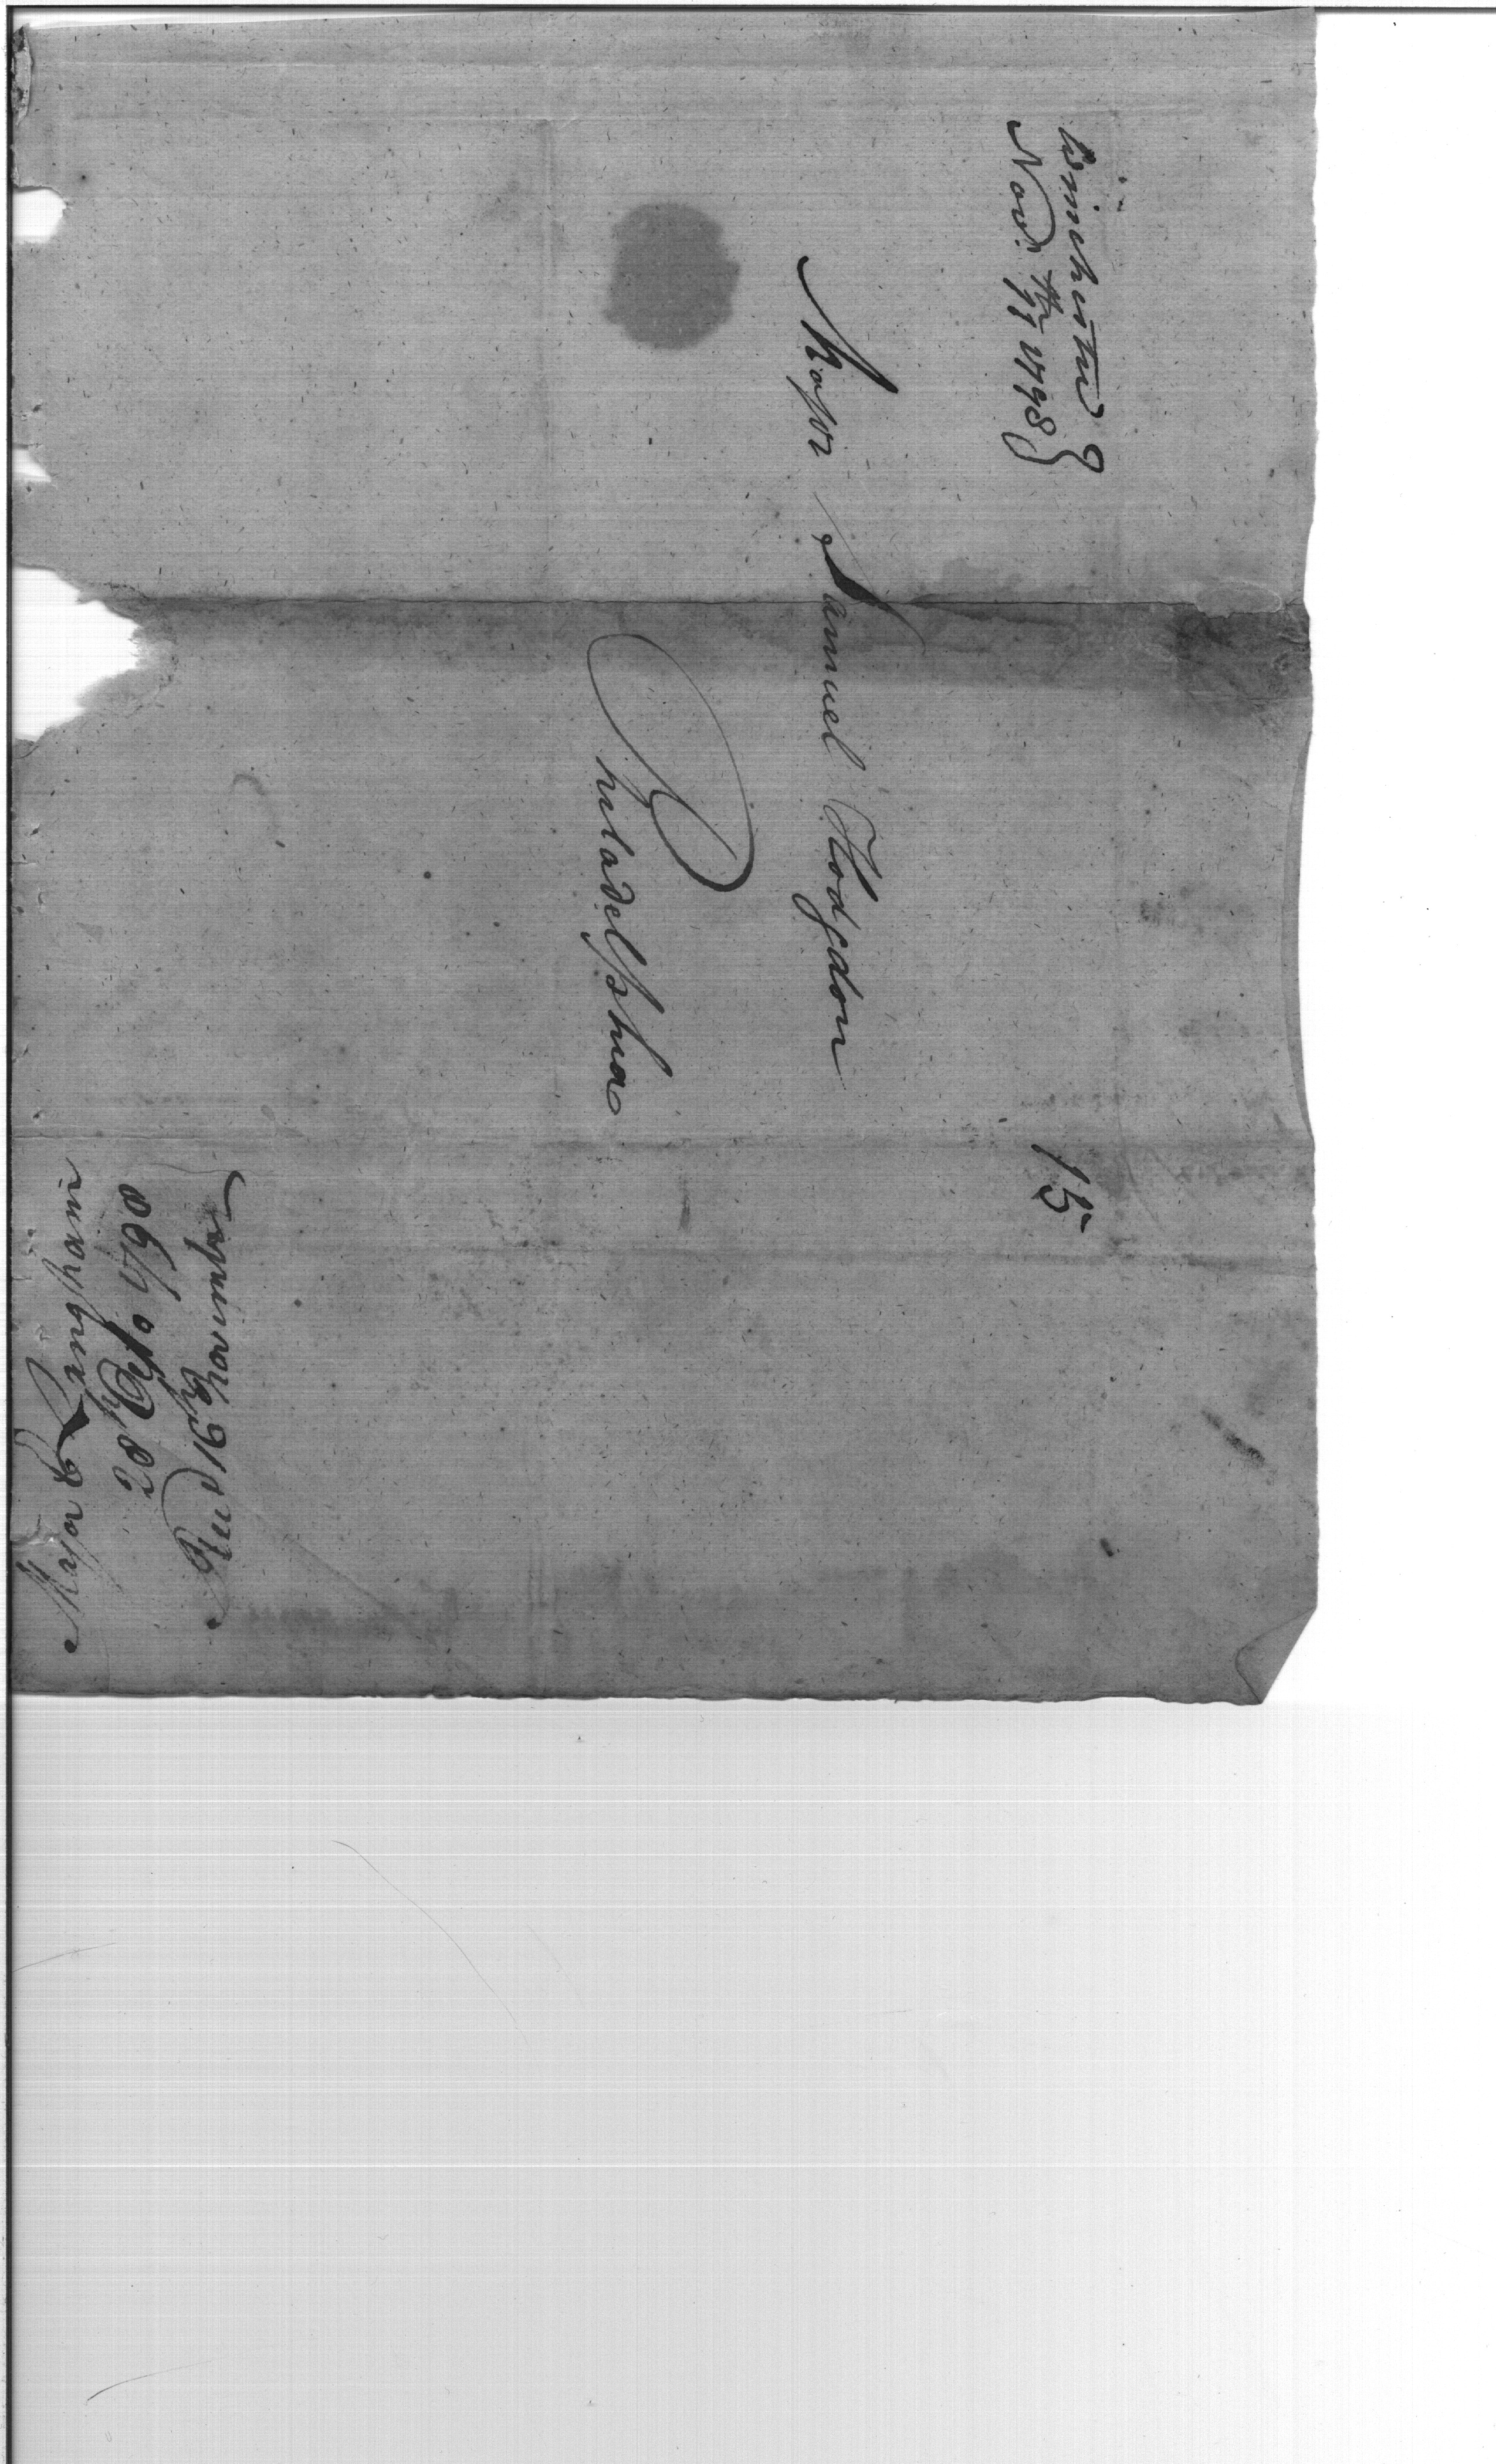 Winchester }
Nov. 11th 1798 }
15
Major Samuel Hodgdon
Philadelphia
Major E Langham
28th Octo. 1798
Recd 16th November